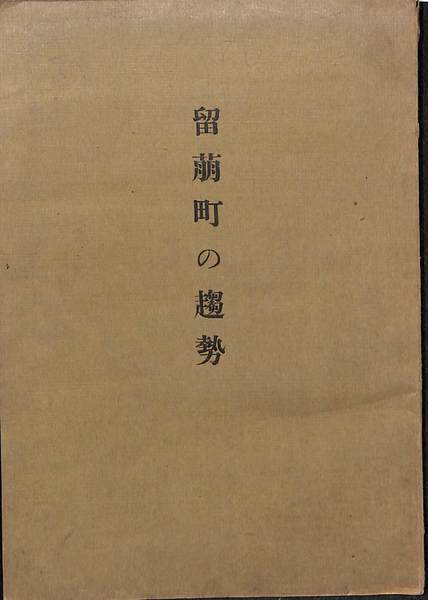 留萠町の趨勢